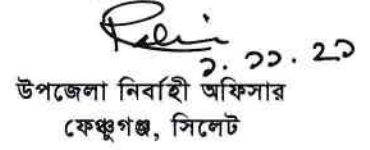 ১.১১.২১
উপজেলা নির্বাহী অফিসার
ফেঞ্চুগঞ্জ, সিলেট